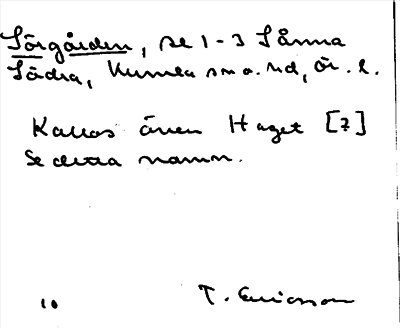 Sörgården, se 1-3 Sånna
Södra, Kumla sn o. hd, Ör. l.
Kallas även Haget [?]
Se detta namn.
T. Ericsson
10